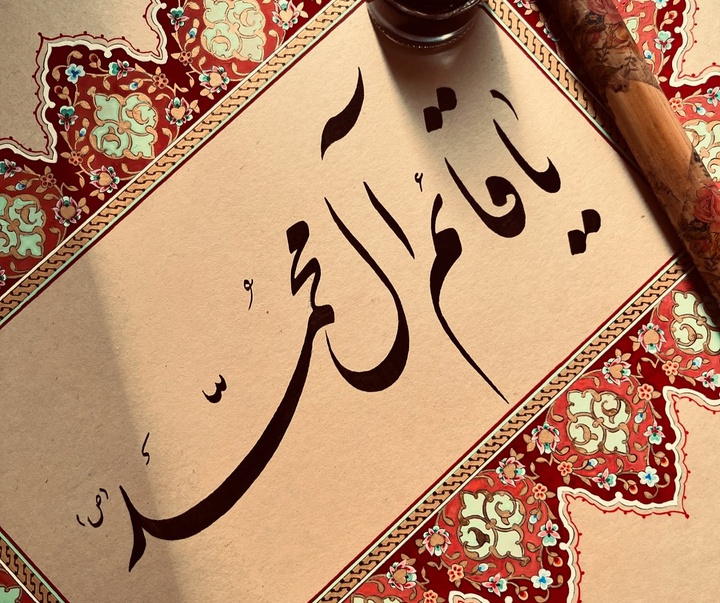 یا قائم آل محُمّدَ (ص)